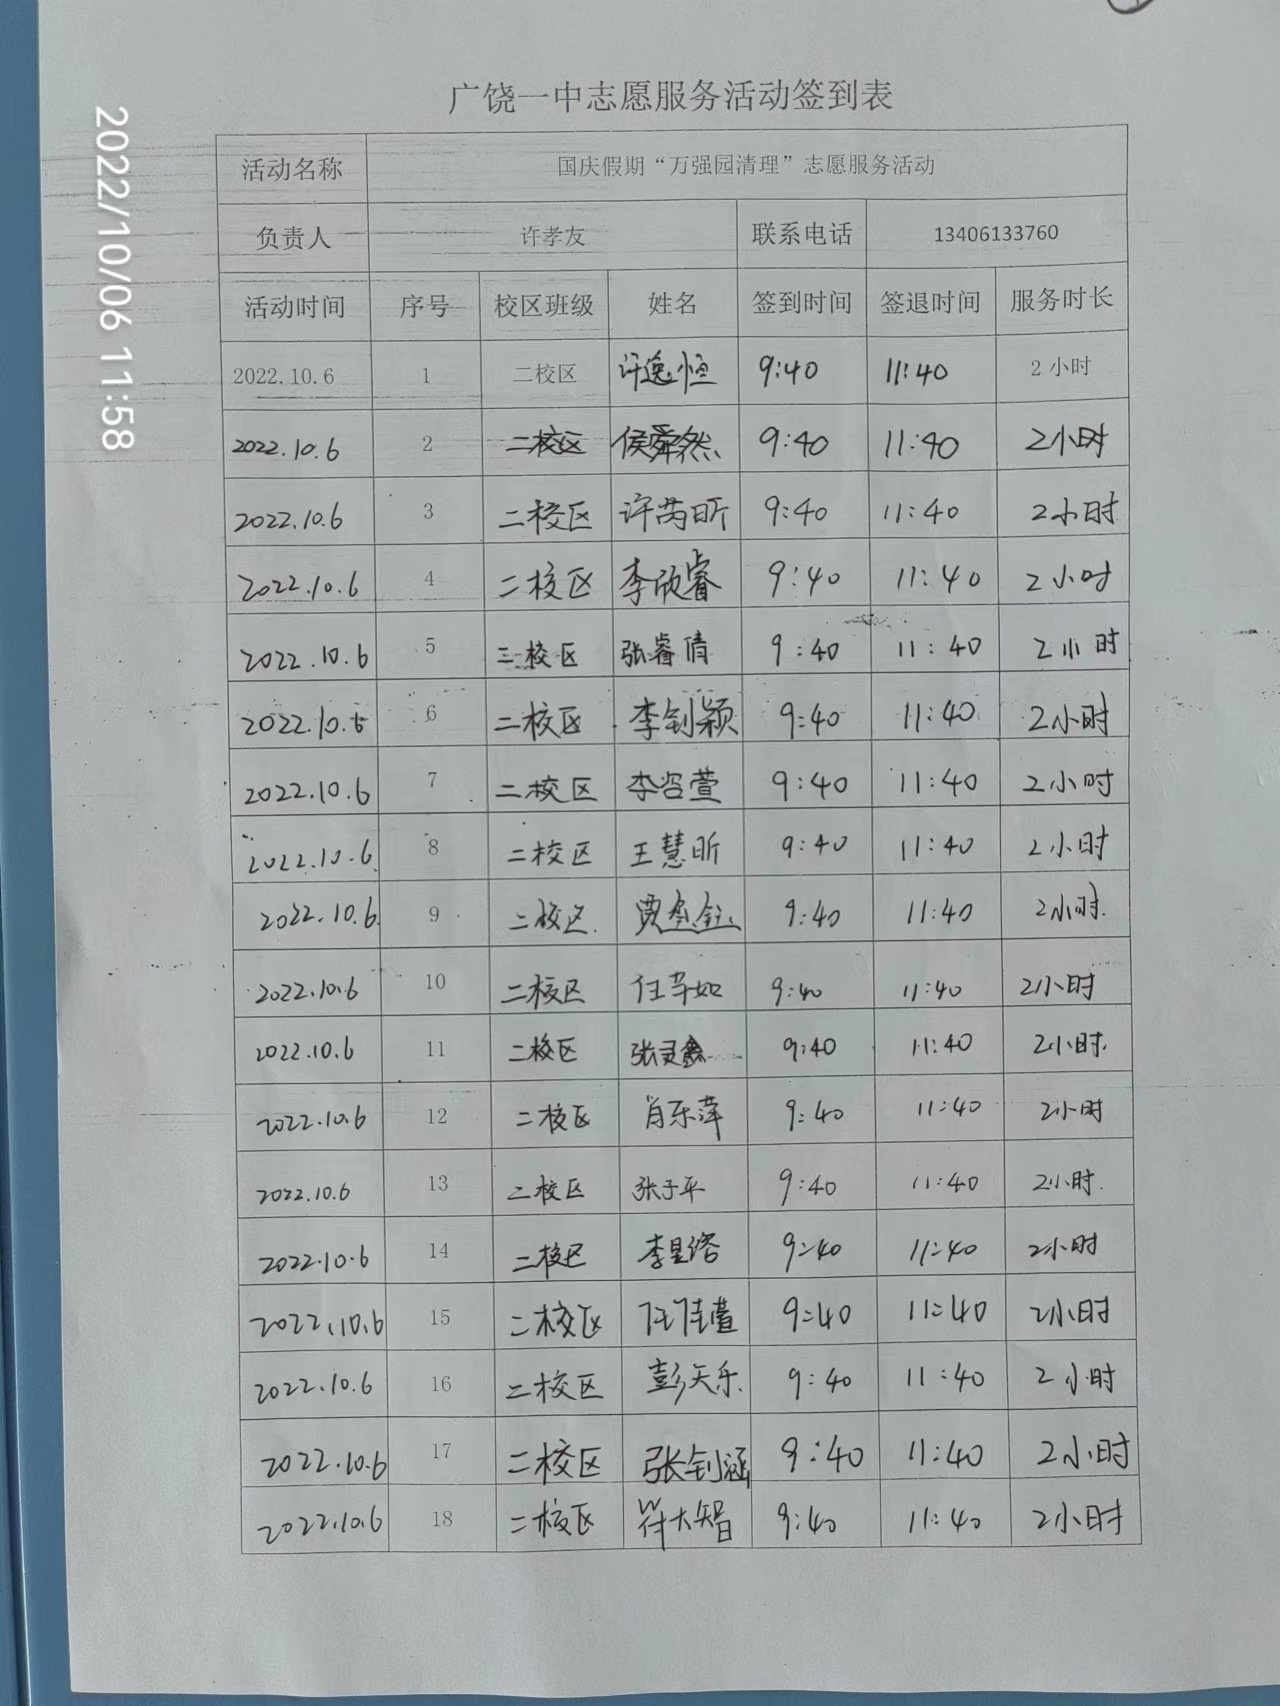 广饶一中志愿服务活动签到表
活动名称 国庆假期“万强园清理”志愿服务活动
负责人 许孝友 联系电话 13406133760
活动时间 序号 校区班级 姓名 签到时间 签退时间 服务时长
2022.10.6 1 二校区 许逸恒 9:40 11:40 2小时
2022.10.6 2 二校区 侯舜然 9:40 11:40 2小时
2022.10.6 3 二校区 许芮昕 9:40 11:40 2小时
2022.10.6 4 二校区 李欣睿 9:40 11:40 2小时
2022.10.6 5 三校区 张睿倩 9:40 11:40 2小时
2022.10.6 6 二校区 李钊颖 9:40 11:40 2小时
2022.10.6 7 二校区 李咨萱 9:40 11:40 2小时
2022.10.6 8 二校区 王慧昕 9:40 11:40 2小时
2022.10.6 9 二校区 贾 9:40 11:40 2小时
2022.10.6 10 二校区 任芊如 9:40 11:40 2小时
2022.10.6 11 二校区 张灵鑫 9:40 11:40 2小时
2022.10.6 12 二校区 肖乐萍 9:40 11:40 2小时
2022.10.6 13 二校区 张子平 9:40 11:40 2小时
2022.10.6 14 二校区 李昱 9:40 11:40 2小时
2022.10.6 15 二校区 任佳萱 9:40 11:40 2小时
2022.10.6 16 二校区 彭天乐 9:40 11:40 2小时
2022.10.6 17 二校区 张钊涵 9:40 11:40 2小时
2022.10.6 18 二校区 符大智 9:40 11:40 2小时
2022/10/06 11:58